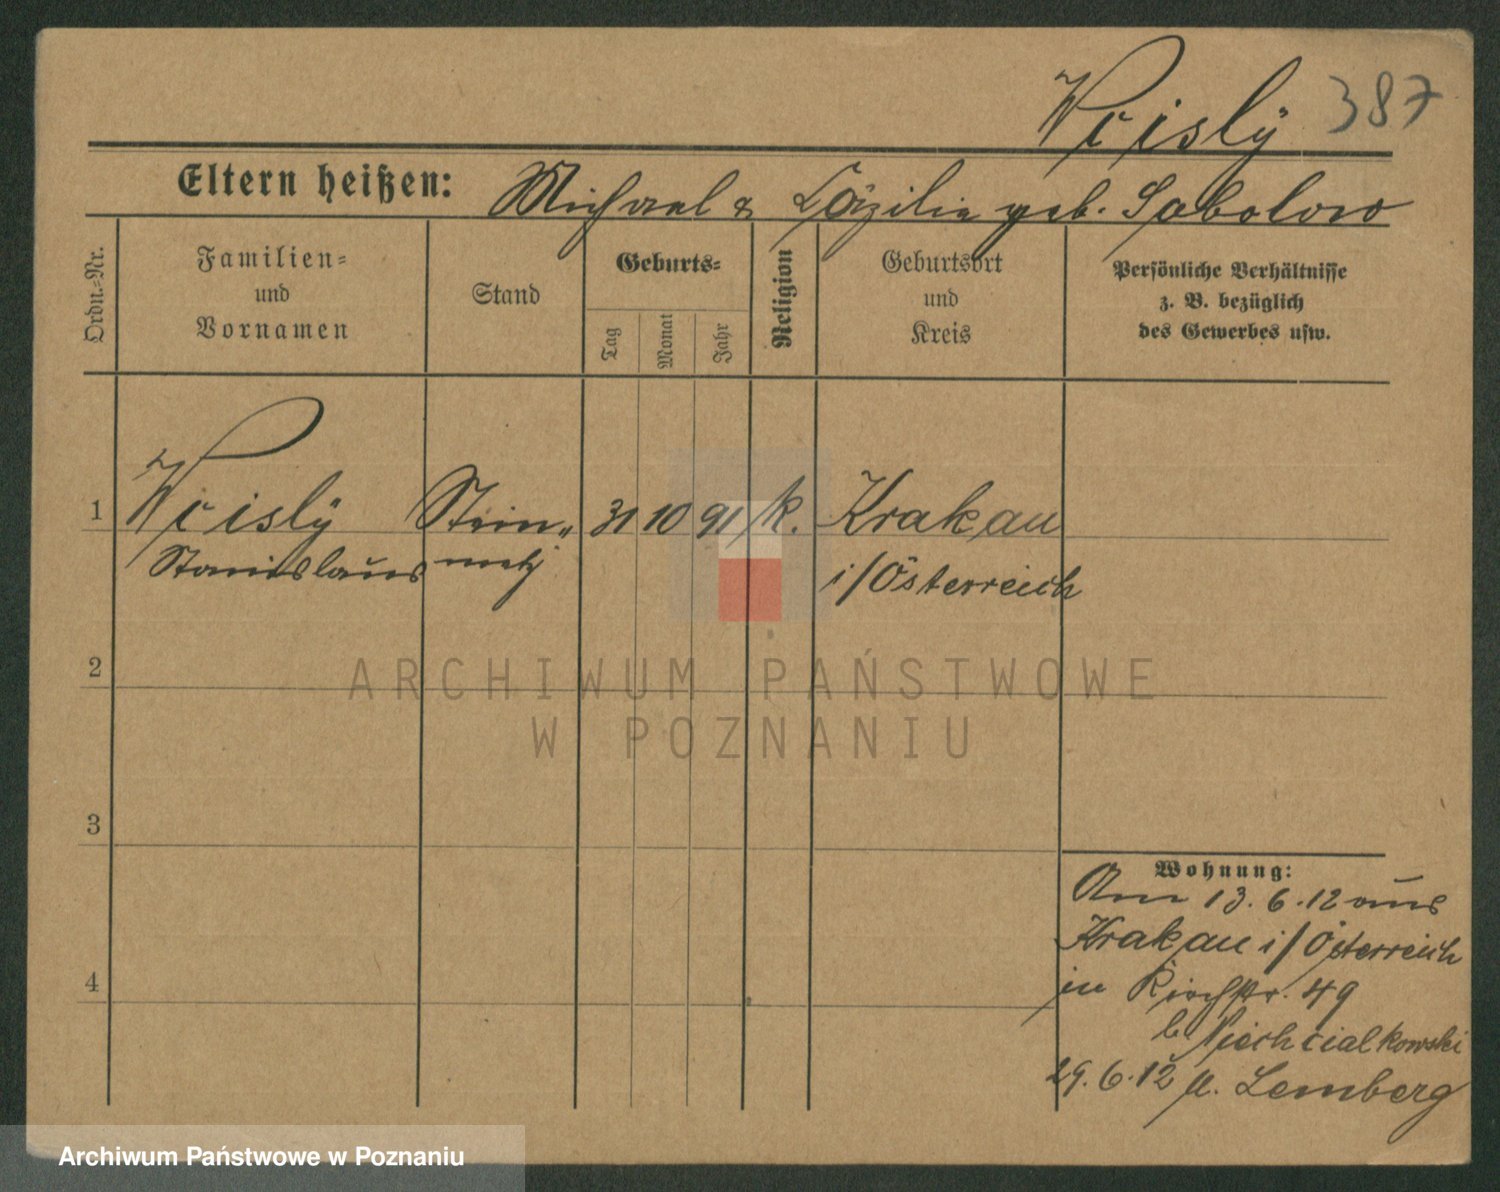 Wcisly 387
Eltern heißen: Michael & Cäzilie geb. Sobolow
Ordn.-Nr.
Familien-
und
Vornamen
Stand
Geburts-
Tag
Monat
Jahr
Religion
Geburtsort
und
Kreis
Persönliche Verhältnisse
z. B. bezüglich
des Gewerbes usw.
1 Wcisly Stein- 31 10 91 k. Krakau
Stanislaus metz i/Österreich
2
3
4
Wohnung:
Am 13.6.12 aus
Krakau i/Österreich
in Kirchstr. 49
b.
29.6.12 n. Lemberg
ARCHIWUM PAŃSTWOWE
W POZNANIU
Archiwum Państwowe w Poznaniu